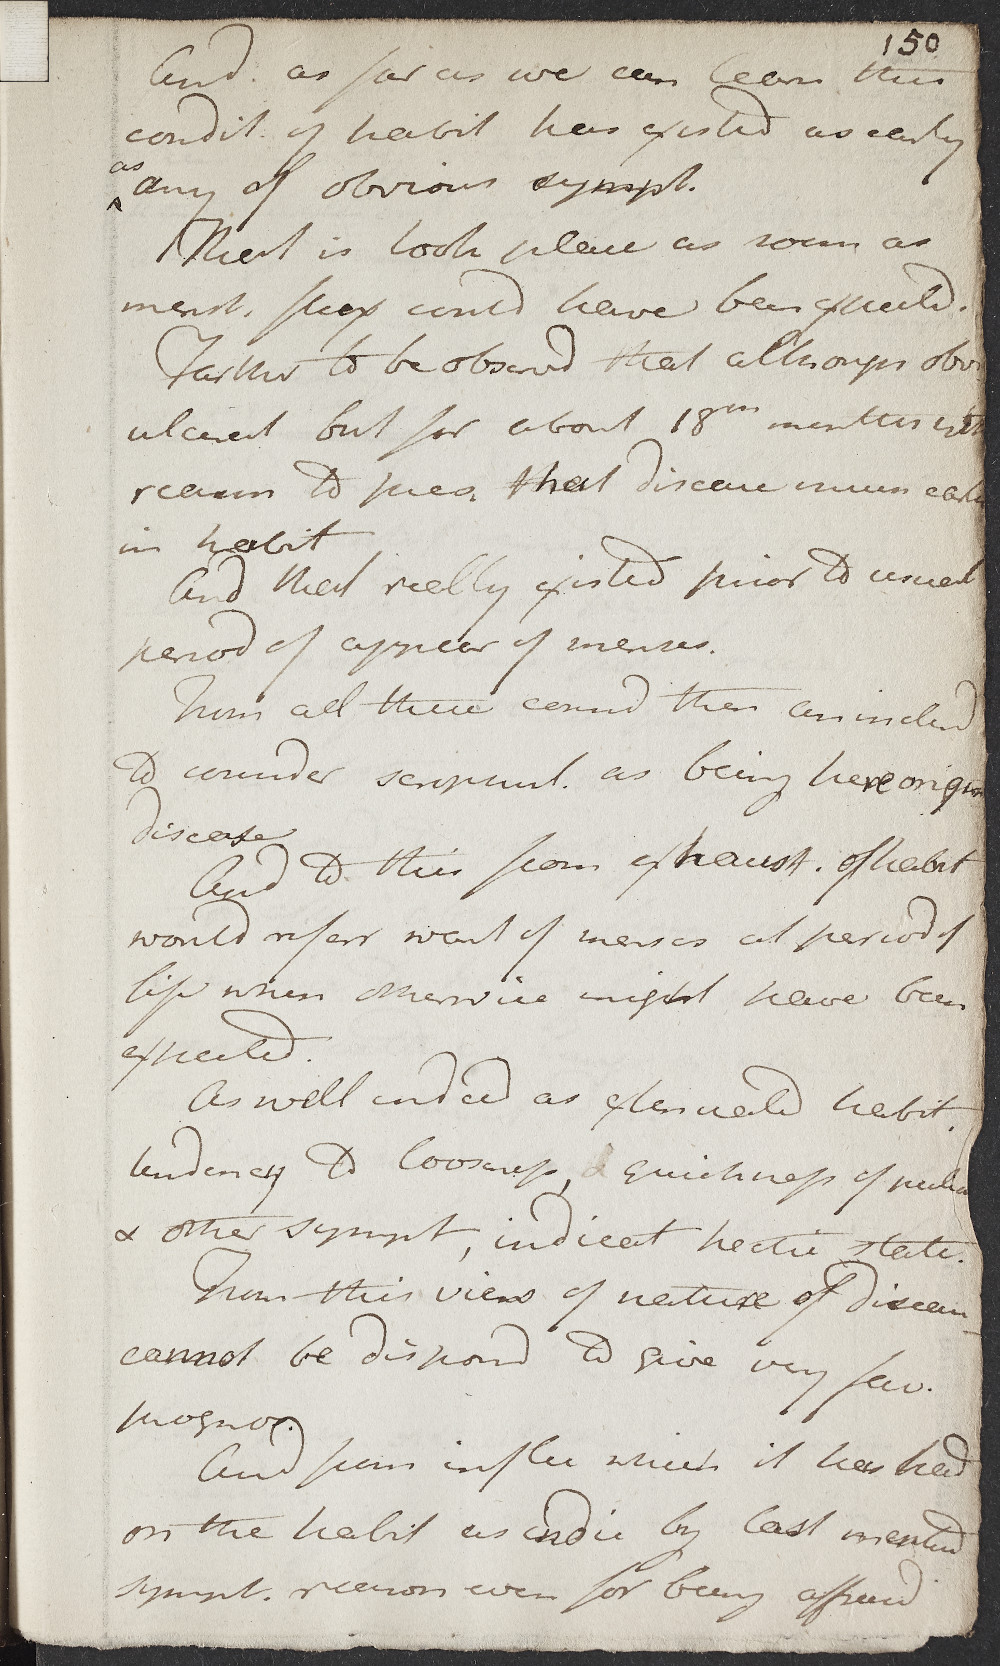 150
And as far as we can learn this
condit. of habit has existed as early
as
any of obvious sympt.
That is took place as soon as
menst. could have been expected.
Farther to be observd that although obv
ulcerat but for about 18 months yet
reason to pres. that disease much earl
in habit
And that really existed prior to usual
period of appear of menses.
From all these then am inclind
to consider scrophul. as being here origin
disease
And to this from exhaust. of habit
would referr want of menses at period of
life when otherwise might have been
expected.
As well indeed as extenuated habit,
tendency to looseness, & quickness of pulse
& other sympt, indicat hectic state.
From this view of nature of disease
cannot be disposd to give very fav.
prognos.
And from influ which it has had
on the habit as indic by last mentiond
sympt. reason even for being affraid